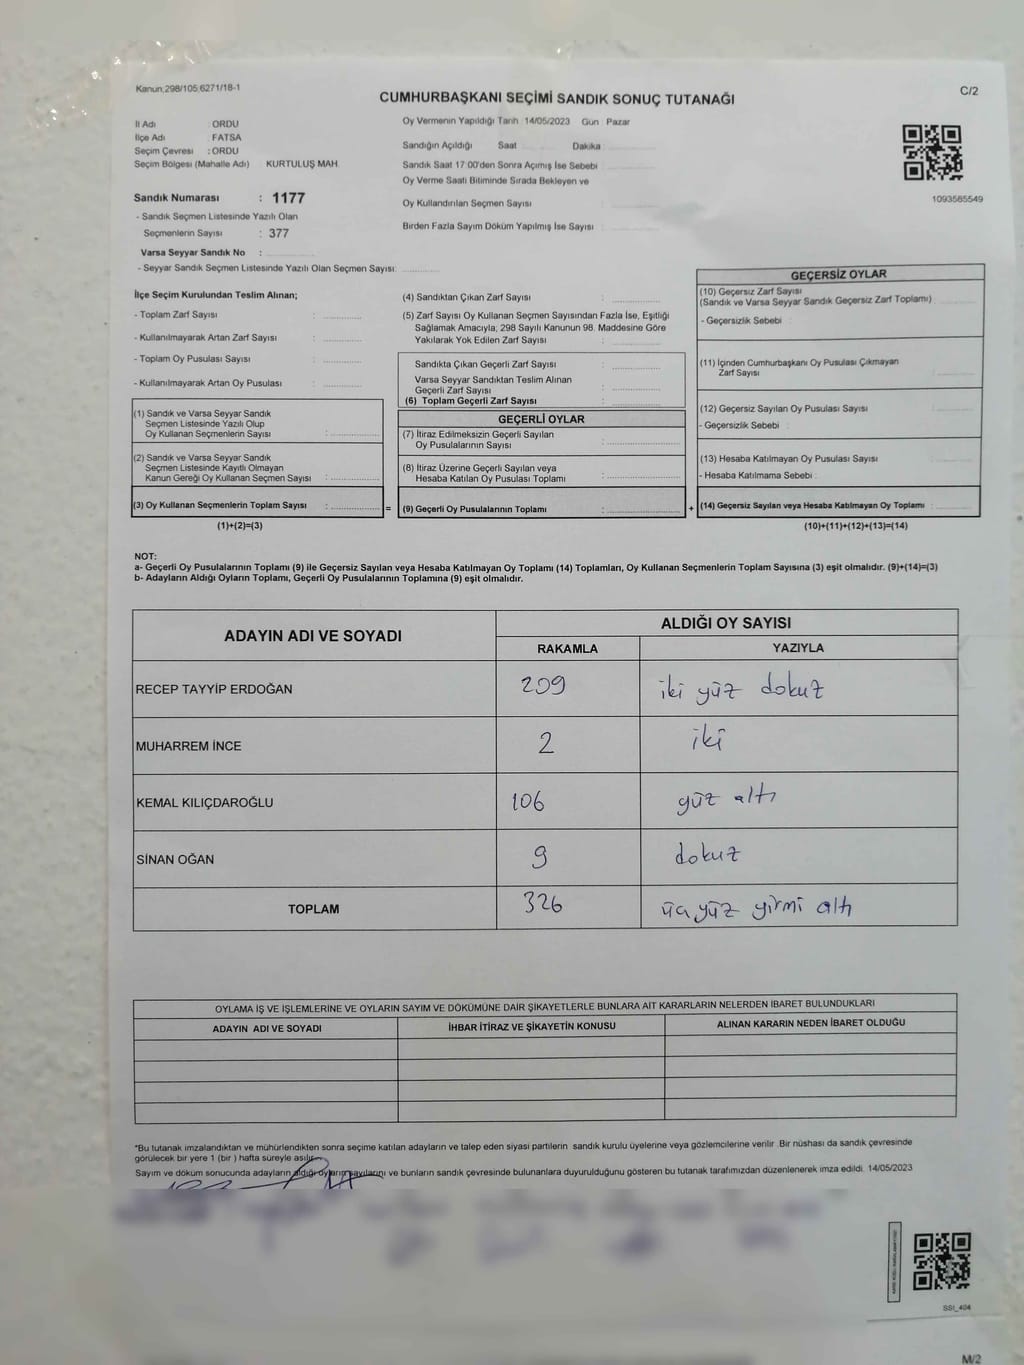 Kanun:298/105;6271/18-1
C/2
CUMHURBAŞKANI SEÇİMİ SANDIK SONUÇ TUTANAĞI
İl Adı : ORDU
İlçe Adı : FATSA
Seçim Çevresi : ORDU
Seçim Bölgesi (Mahalle Adı) KURTULUŞ MAH.
Sandık Numarası : 1177
- Sandık Seçmen Listesinde Yazılı Olan
Seçmenlerin Sayısı : 377
Varsa Seyyar Sandık No :
- Seyyar Sandık Seçmen Listesinde Yazılı Olan Seçmen Sayısı:
Oy Vermenin Yapıldığı Tarih 14/05/2023 Gün : Pazar
Sandığın Açıldığı Saat Dakika
Sandık Saat 17:00'den Sonra Açımış İse Sebebi
Oy Verme Saati Bitiminde Sırada Bekleyen ve
Oy Kullandırılan Seçmen Sayısı
Birden Fazla Sayım Döküm Yapılmış İse Sayısı
1093585549
İlçe Seçim Kurulundan Teslim Alınan;
- Toplam Zarf Sayısı :
- Kullanılmayarak Artan Zarf Sayısı :
- Toplam Oy Pusulası Sayısı :
- Kullanılmayarak Artan Oy Pusulası :
(1) Sandık ve Varsa Seyyar Sandık
Seçmen Listesinde Yazılı Olup
Oy Kullanan Seçmenlerin Sayısı :
(2) Sandık ve Varsa Seyyar Sandık
Seçmen Listesinde Kayıtlı Olmayan
Kanun Gereği Oy Kullanan Seçmen Sayısı :
(3) Oy Kullanan Seçmenlerin Toplam Sayısı :
(1)+(2)=(3)
=
(4) Sandıktan Çıkan Zarf Sayısı :
(5) Zarf Sayısı Oy Kullanan Seçmen Sayısından Fazla İse, Eşitliği
Sağlamak Amacıyla; 298 Sayılı Kanunun 98. Maddesine Göre
Yakılarak Yok Edilen Zarf Sayısı :
Sandıkta Çıkan Geçerli Zarf Sayısı :
Varsa Seyyar Sandıktan Teslim Alınan
Geçerli Zarf Sayısı :
(6) Toplam Geçerli Zarf Sayısı :
GEÇERLİ OYLAR
(7) İtiraz Edilmeksizin Geçerli Sayılan
Oy Pusulalarının Sayısı :
(8) İtiraz Üzerine Geçerli Sayılan veya
Hesaba Katılan Oy Pusulası Toplamı :
(9) Geçerli Oy Pusulalarının Toplamı :
+
GEÇERSİZ OYLAR
(10) Geçersiz Zarf Sayısı
(Sandık ve Varsa Seyyar Sandık Geçersiz Zarf Toplamı)
- Geçersizlik Sebebi :
(11) İçinden Cumhurbaşkanı Oy Pusulası Çıkmayan
Zarf Sayısı
(12) Geçersiz Sayılan Oy Pusulası Sayısı
- Geçersizlik Sebebi :
(13) Hesaba Katılmayan Oy Pusulası Sayısı
- Hesaba Katılmama Sebebi :
(14) Geçersiz Sayılan veya Hesaba Katılmayan Oy Toplamı :
(10)+(11)+(12)+(13)=(14)
NOT:
a- Geçerli Oy Pusulalarının Toplamı (9) ile Geçersiz Sayılan veya Hesaba Katılmayan Oy Toplamı (14) Toplamları, Oy Kullanan Seçmenlerin Toplam Sayısına (3) eşit olmalıdır. (9)+(14)=(3)
b- Adayların Aldığı Oyların Toplamı, Geçerli Oy Pusulalarının Toplamına (9) eşit olmalıdır.
ADAYIN ADI VE SOYADI ALDIĞI OY SAYISI
RAKAMLA YAZIYLA
RECEP TAYYİP ERDOĞAN 209 iki yüz dokuz
MUHARREM İNCE 2 iki
KEMAL KILIÇDAROĞLU 106 yüz altı
SİNAN OĞAN 9 dokuz
TOPLAM 326 üç yüz yirmi altı
OYLAMA İŞ VE İŞLEMLERİNE VE OYLARIN SAYIM VE DÖKÜMÜNE DAİR ŞİKAYETLERLE BUNLARA AİT KARARLARIN NELERDEN İBARET BULUNDUKLARI
ADAYIN ADI VE SOYADI İHBAR İTİRAZ VE ŞİKAYETİN KONUSU ALINAN KARARIN NEDEN İBARET OLDUĞU
*Bu tutanak imzalandıktan ve mühürlendikten sonra seçime katılan adayların ve talep eden siyasi partilerin sandık kurulu üyelerine veya gözlemcilerine verilir. Bir nüshası da sandık çevresinde
görülecek bir yere 1 (bir ) hafta süreyle asılır.
Sayım ve döküm sonucunda adayların aldığı oyların sayılarını ve bunların sandık çevresinde bulunanlara duyurulduğunu gösteren bu tutanak tarafımızdan düzenlenerek imza edildi. 14/05/2023
SSI_404
M/2